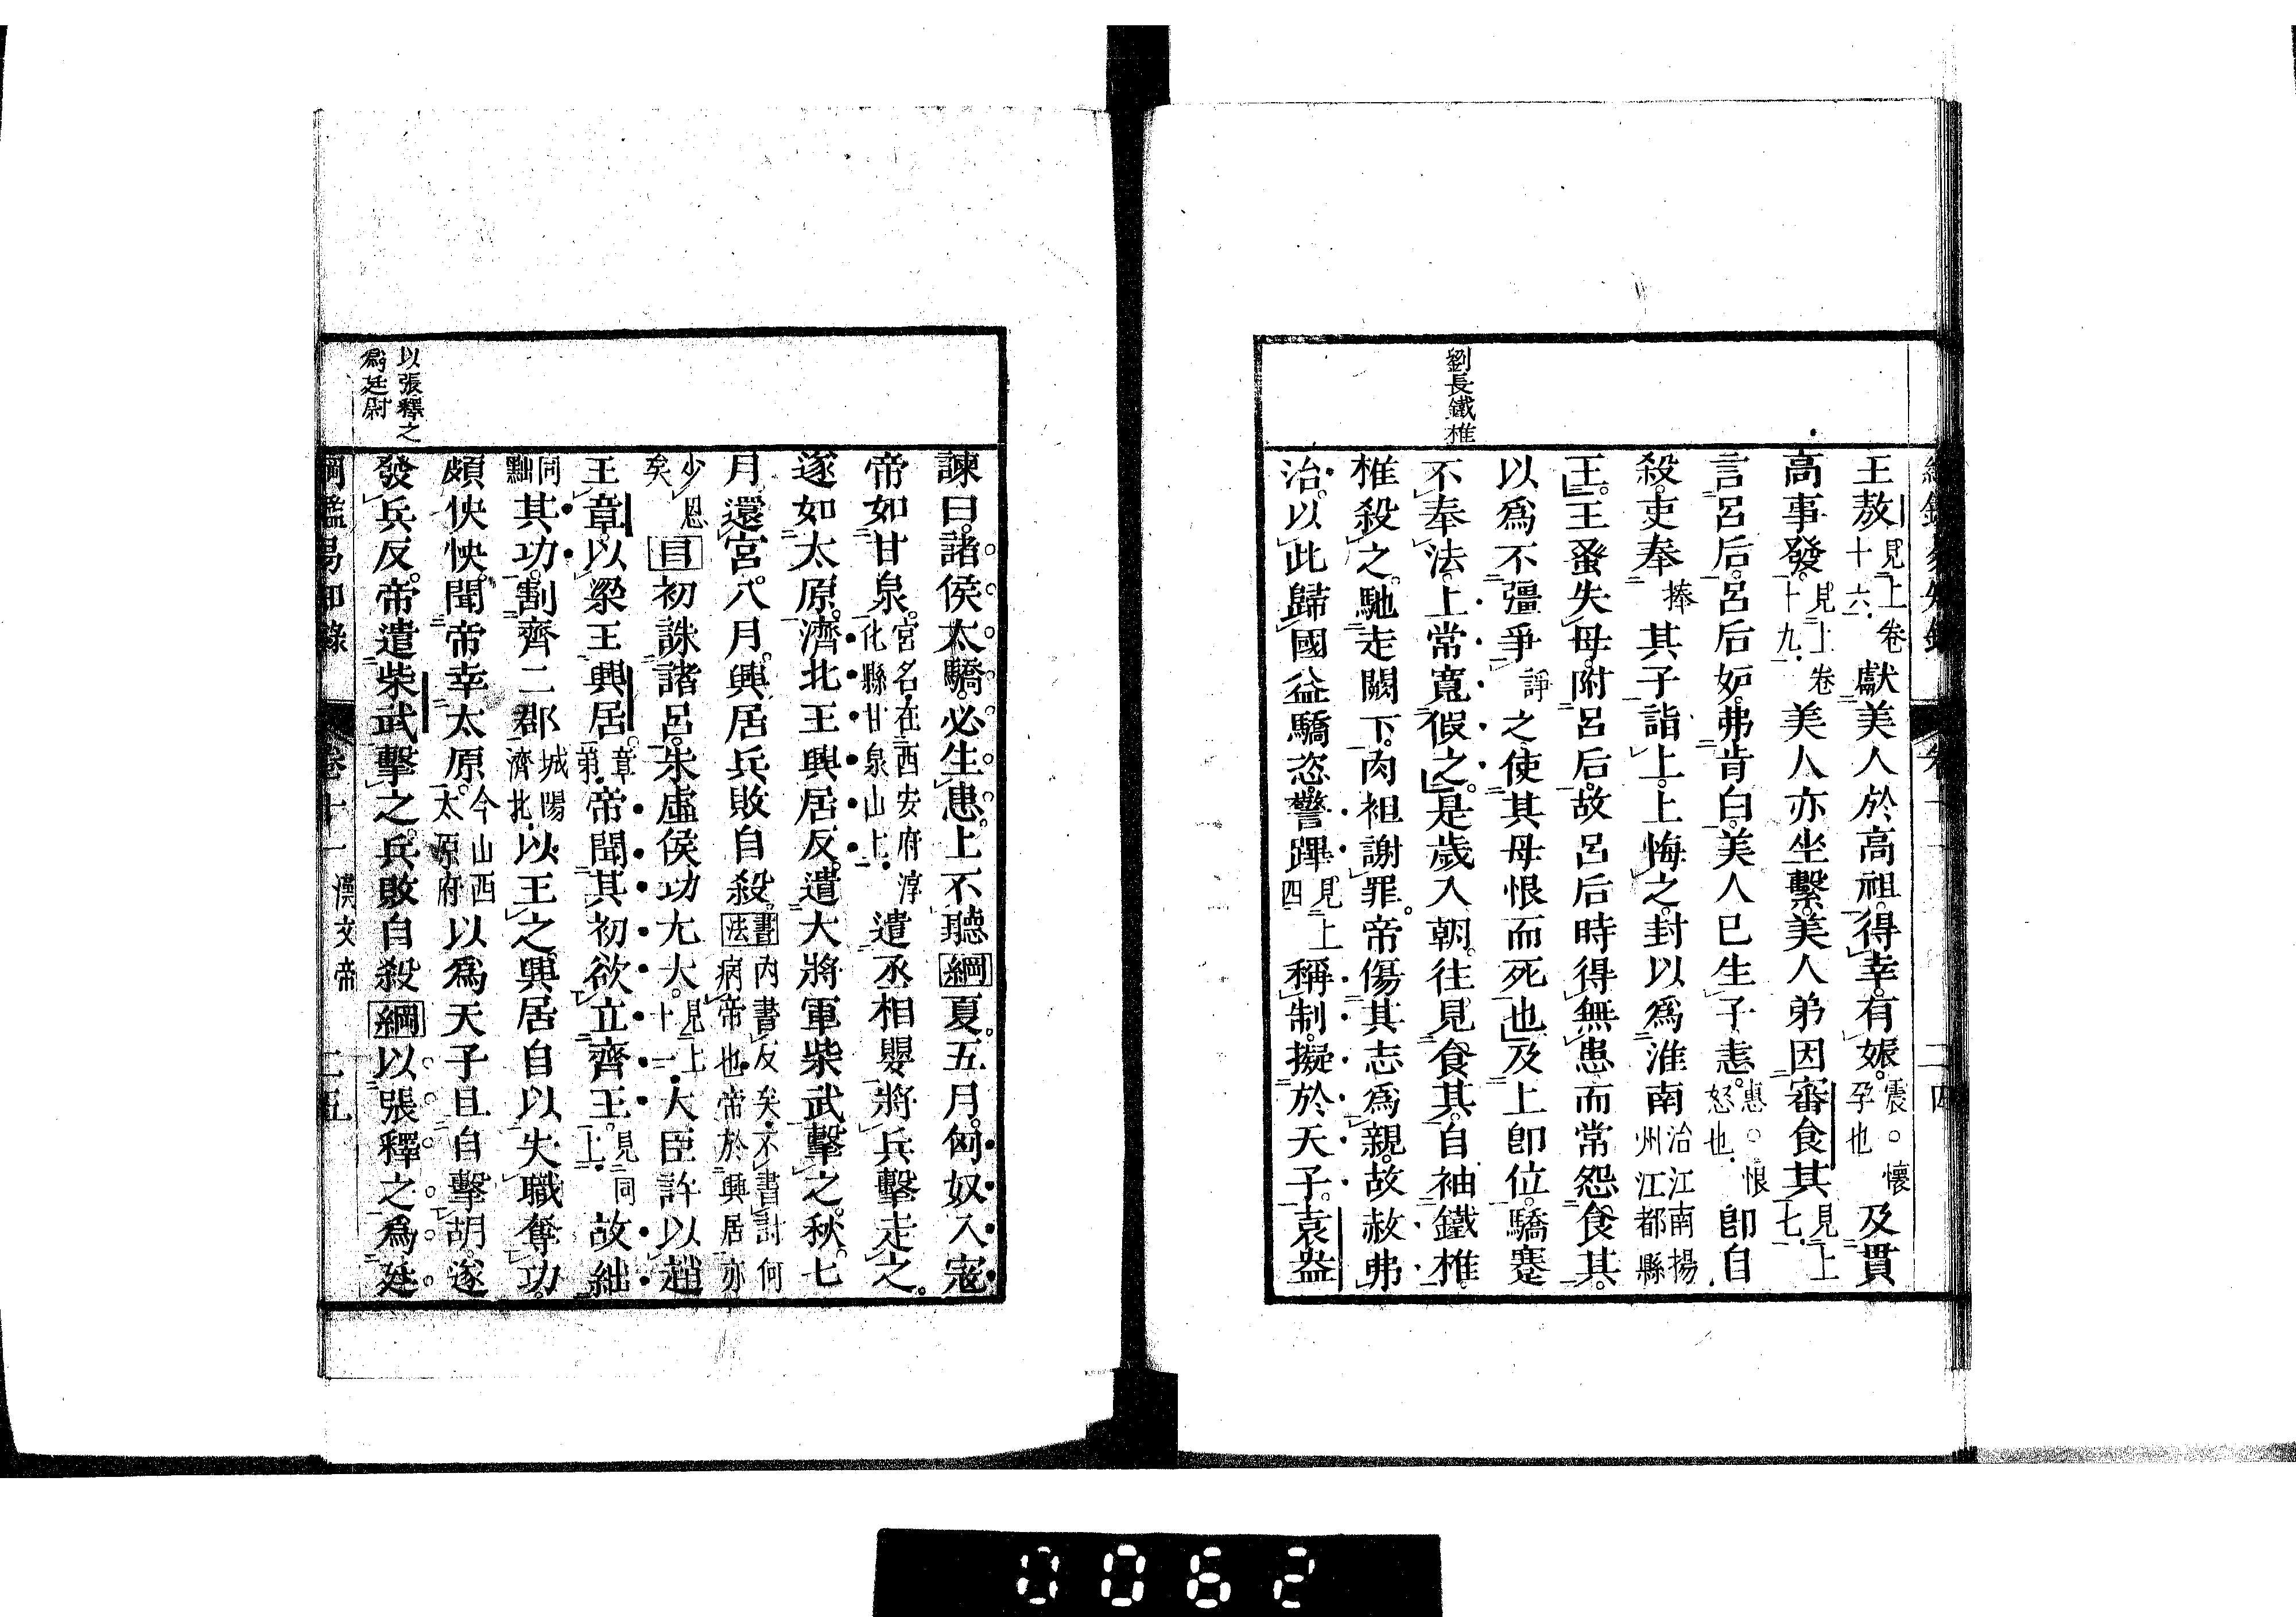 劉長鐵椎
王敖見上卷十六獻美人於高祖得幸有娠震○懷孕也及貫
高事發見上卷十九美人亦坐繫美人弟因審食其見上七
言呂后呂后妒弗肯白美人已生子恚惠○恨怒也卽自
殺吏奉捧其子詣上上悔之封以爲淮南治江南揚州江都縣
王王蚤失母附呂后故呂后時得無患而常怨食其
以爲不彊爭諍之使其母恨而死也及上卽位驕蹇
不奉法上常寬假之是歲入朝往見食其自袖鐵椎
椎殺之馳走闕下肉袒謝罪帝傷其志爲親故赦弗
治以此歸國益驕恣警蹕見上四稱制擬於天子袁盎
以張釋之
爲廷尉
諫曰諸侯太驕必生患上不聽綱夏五月匈奴入寇
帝如甘泉宮名在西安府淳化縣甘泉山上遣丞相嬰將兵擊走之
遂如太原濟北王興居反遣大將軍柴武擊之秋七
月還宮八月興居兵敗自殺書法書內書反矣不書討何病帝也帝於興居亦
少恩矣目初誅諸呂朱虛侯功尤大見上十一大臣許以趙
王章以梁王興居章弟帝聞其初欲立齊王見同上故絀
同黜其功割齊二郡城陽濟北以王之興居自以失職奪功
頗怏怏聞帝幸太原今山西太原府以爲天子且自擊胡遂
發兵反帝遣柴武擊之兵敗自殺綱以張釋之爲廷
綱鑑易知錄 卷十一 漢文帝 二五